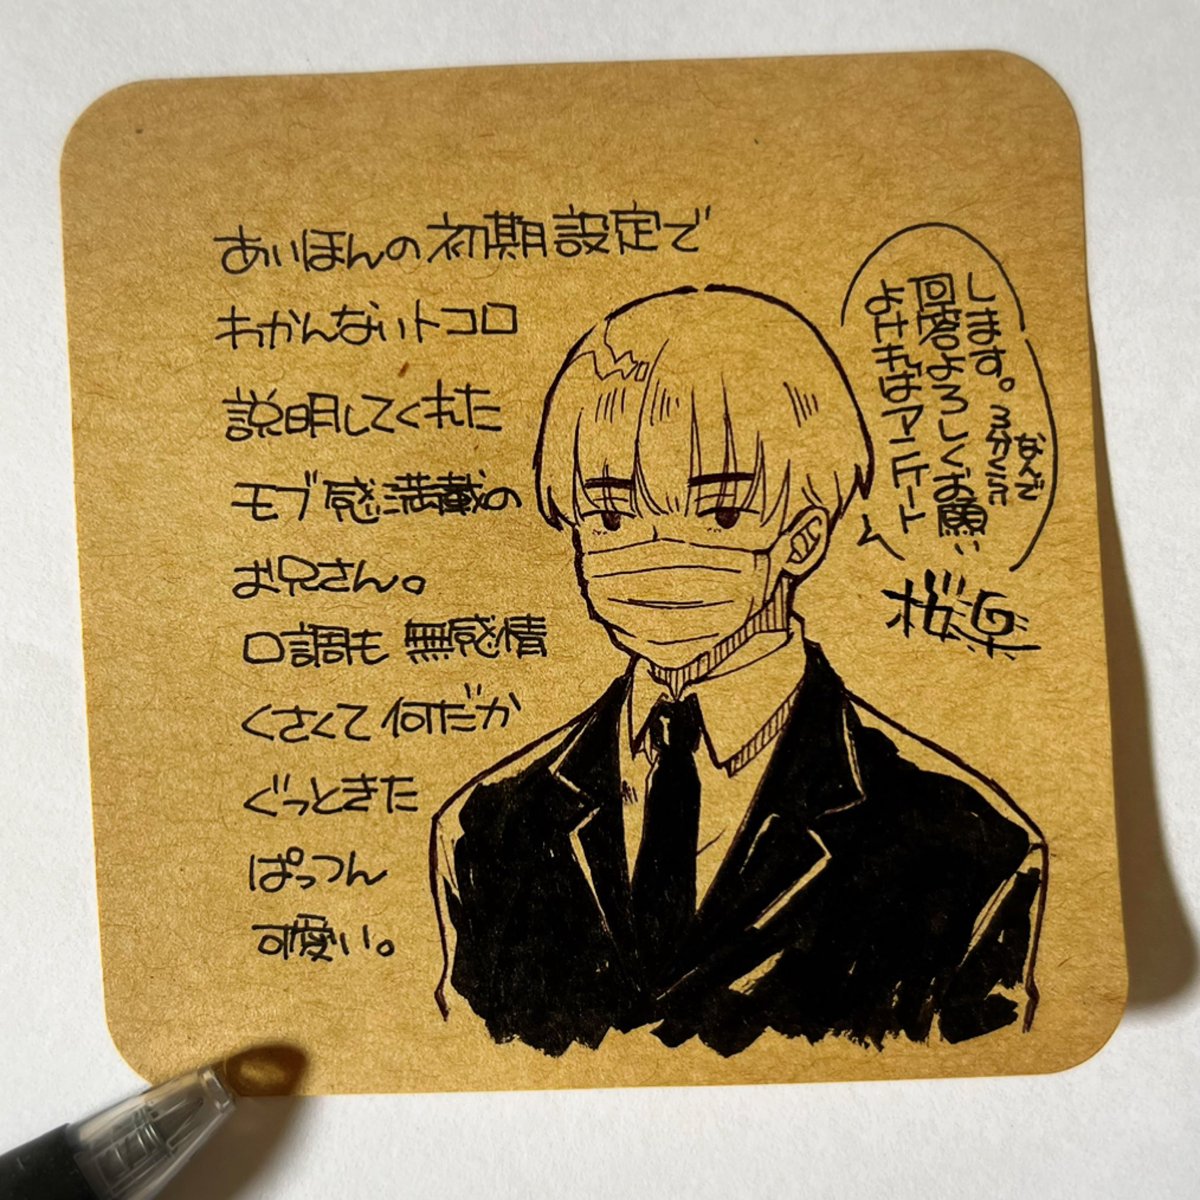 あいほんの初期設定で
わかんないトコロ
説明してくれた
モブ感満載の
お兄さん。
口調も無感情
くさくて何だか
ぐっときた
ぱっつん
可愛い。
よければアンケート
回答よろしくお願い
します。
3分くらい
なんで